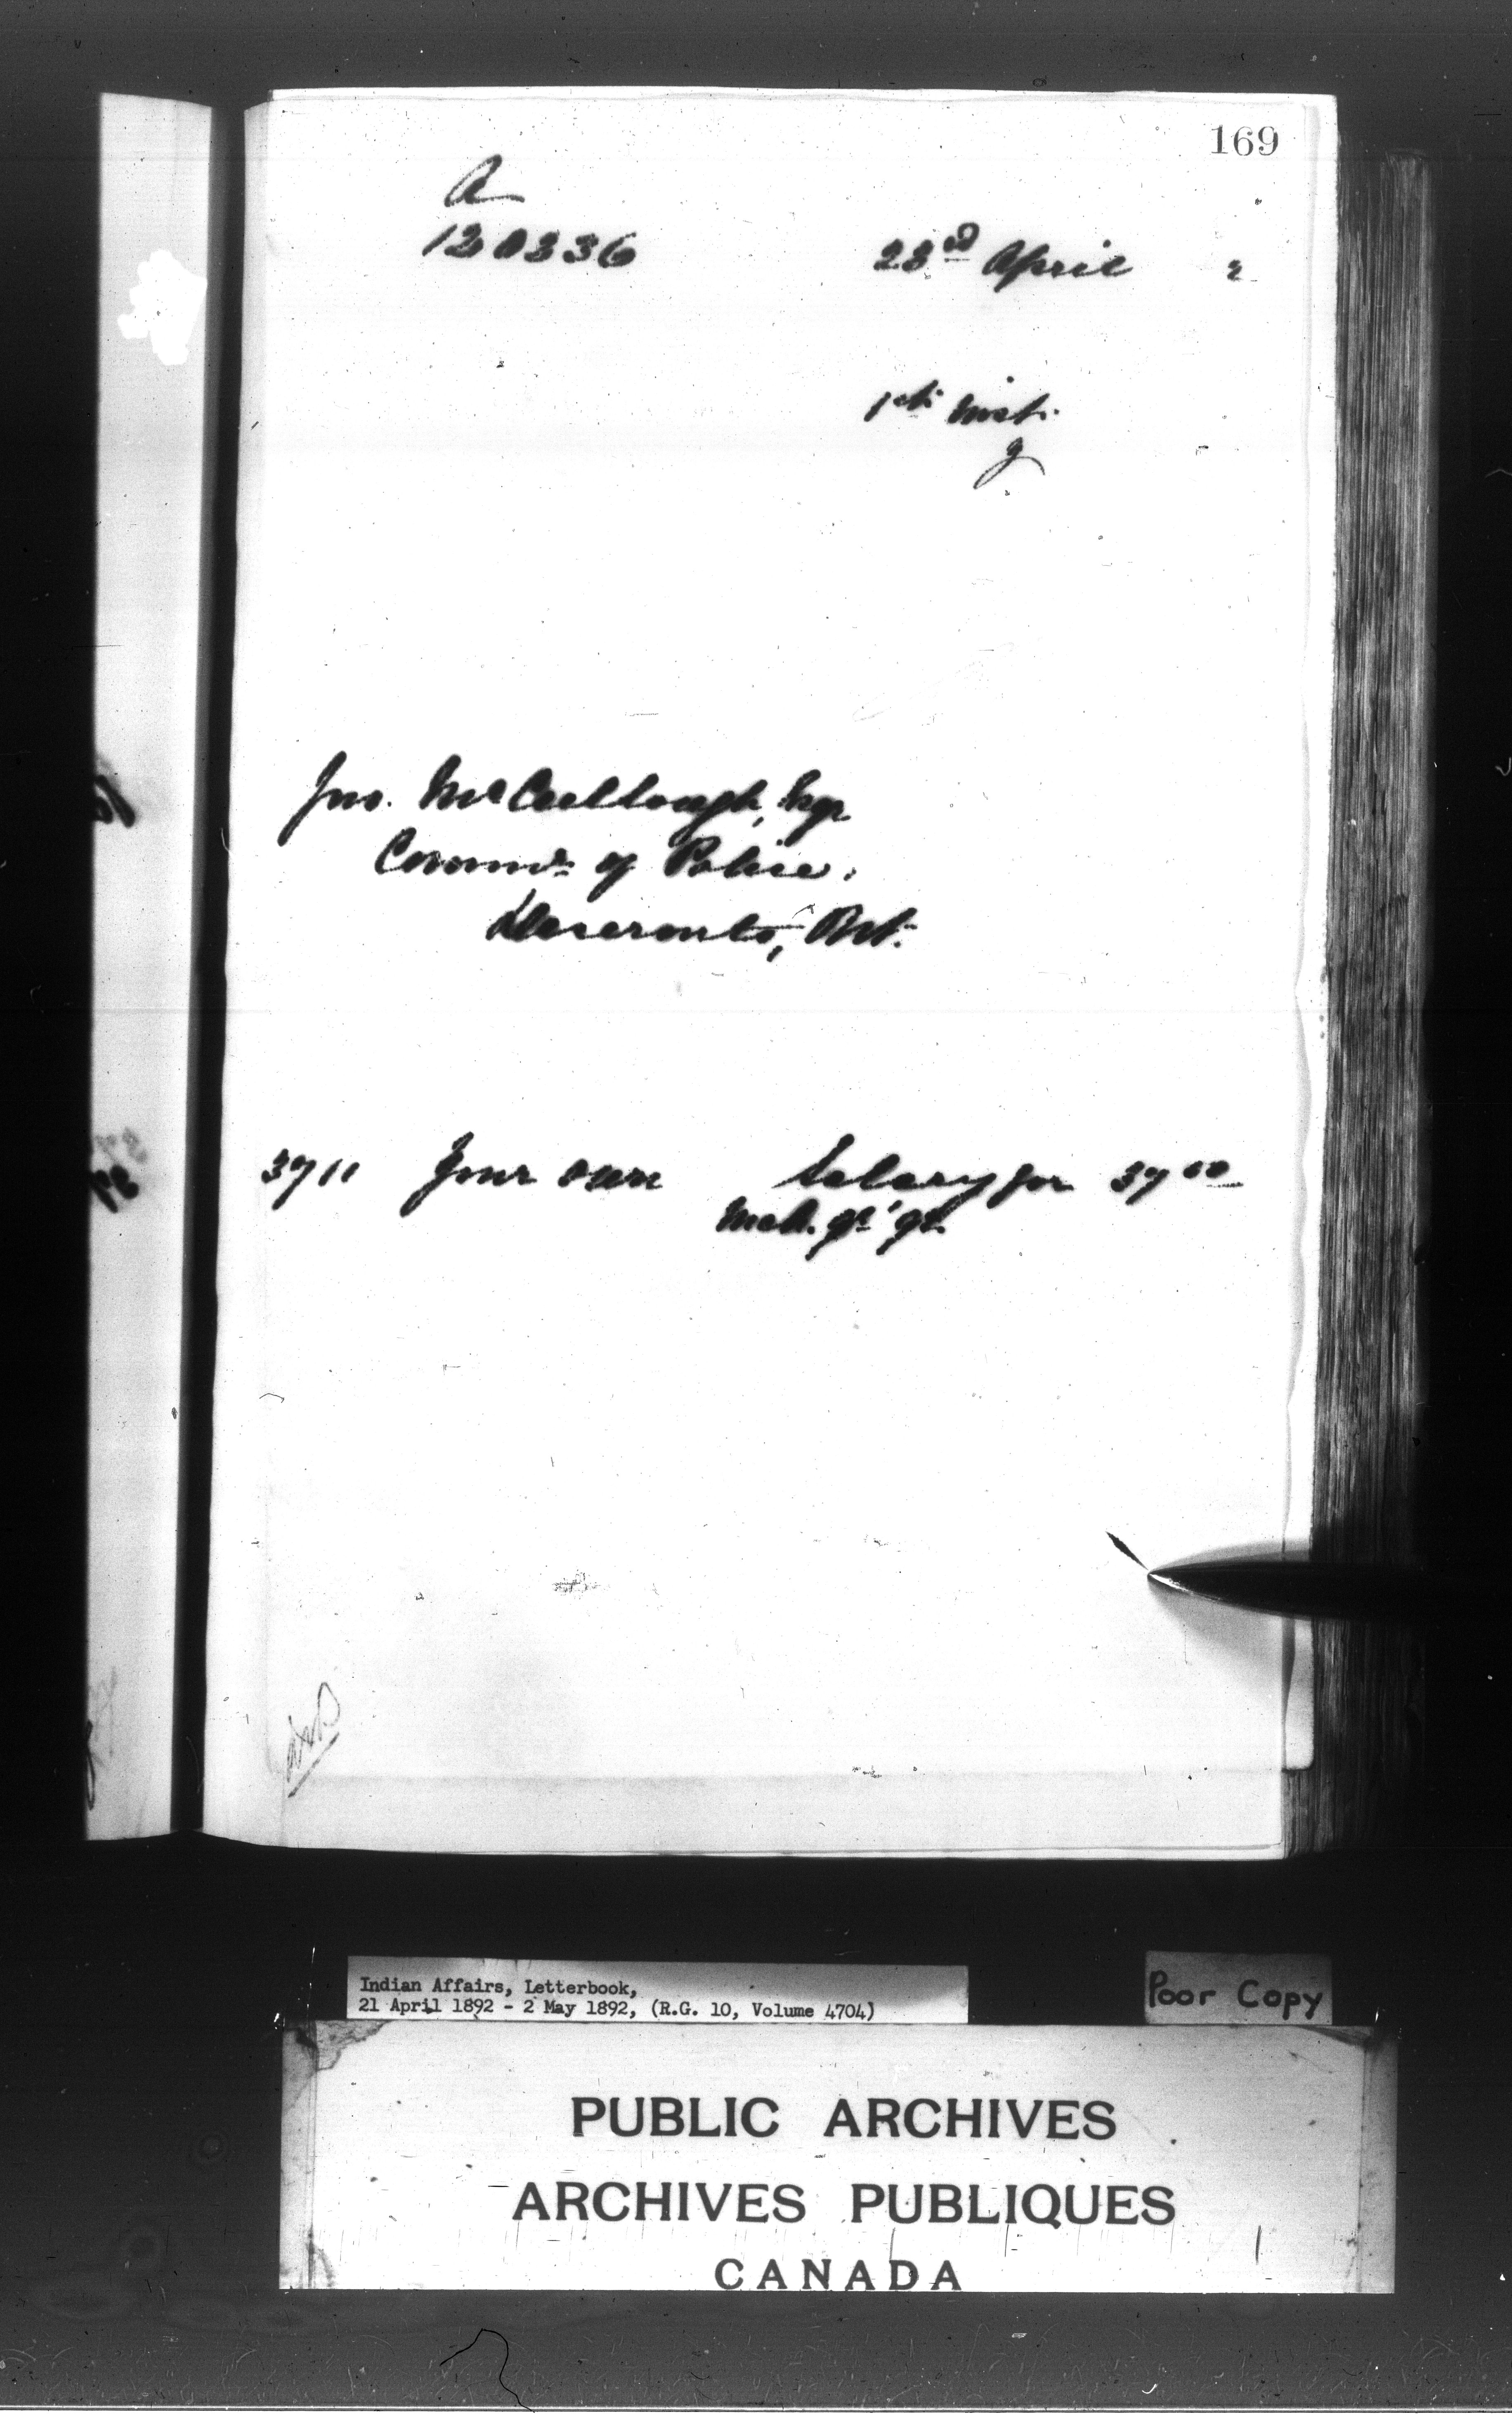 169
A
120336
23rd April 2
1st inst.
Jno. McCullough, Esqr
Commr. of Police.
Deseronto, Ont.
3711 Your own Salary for 37 50
Mch. qr' 92.
Indian Affairs, Letterbook,
21 April 1892 - 2 May 1892, (R.G. 10, Volume 4704)
Poor Copy
PUBLIC ARCHIVES
ARCHIVES PUBLIQUES
CANADA